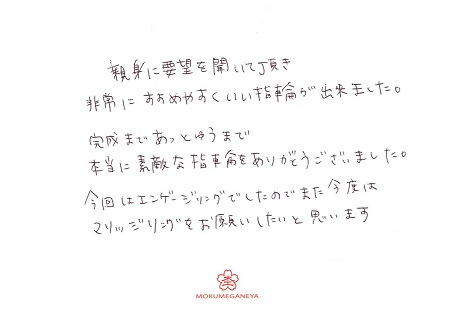 親身に要望を聞いて頂き
非常にすすめやすくいい指輪が出来ました。
完成まであっとゆうまで
本当に素敵な指輪をありがとうございました。
今回はエンゲージリングでしたのでまた今度は
マリッジリングをお願いしたいと思います
MOKUMEGANEYA